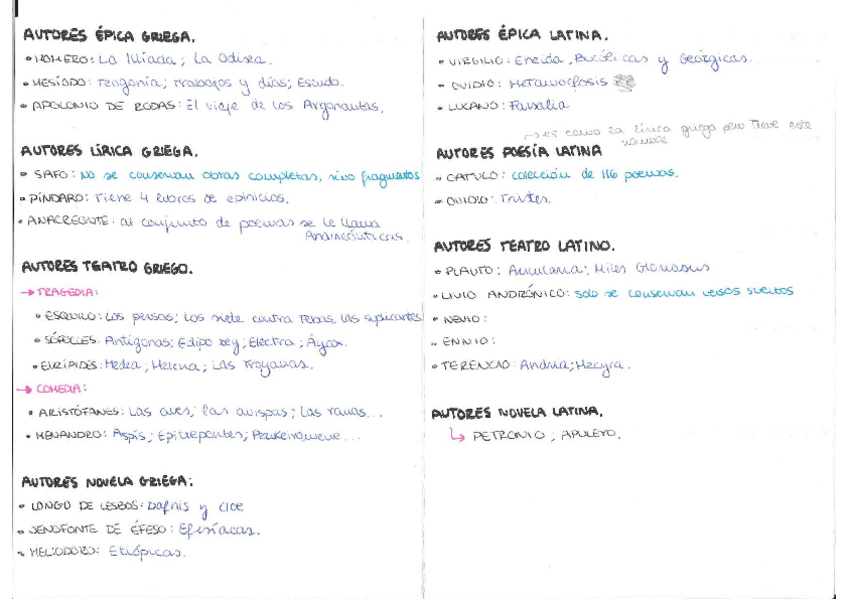 AUTORES ÉPICA GRIEGA.
• HOMERO: La Ilíada; La Odisea.
• HESÍODO: Teogonía; Trabajos y días; Escudo.
• APOLONIO DE RODAS: El viaje de los Argonautas.
AUTORES LÍRICA GRIEGA.
• SAFO: No se conservan obras completas, sino fragmentos
• PÍNDARO: Tiene 4 libros de epinicios.
• ANACREONTE: al conjunto de poemas se le llama
AUTORES TEATRO GRIEGO.
→ TRAGEDIA:
• ESQUILO: Los persas; Los siete contra Tebas, Las suplicantes
• SÓFOCLES: Antígona; Edipo rey; Electra; Áyax.
• EURÍPIDES: Medea; Helena; Las Troyanas.
→ COMEDIA:
• ARISTÓFANES: Las aves; las avispas; Las ranas...
• MENANDRO: Aspis; Epitrepontes;
AUTORES NOVELA GRIEGA:
• LONGO DE LESBOS: Dafnis y Cloe
• JENOFONTE DE ÉFESO: Efesíacas.
• HELIODORO: Etiópicas.
AUTORES ÉPICA LATINA.
• VIRGILIO: Eneida, Bucólicas y Geórgicas.
• OVIDIO: Metamorfosis
• LUCANO: Farsalia
→ es como la lírica griega pero tiene este
nombre
AUTORES POESÍA LATINA
• CATULO: colección de 116 poemas.
• OVIDIO: Tristes.
AUTORES TEATRO LATINO.
• PLAUTO: Aulularia; Miles Gloriosus
• LIVIO ANDRÓNICO: solo se conservan versos sueltos
• NEVIO:
• ENNIO:
• TERENCIO: Andria; Hecyra.
AUTORES NOVELA LATINA.
↳ PETRONIO; APULEYO.